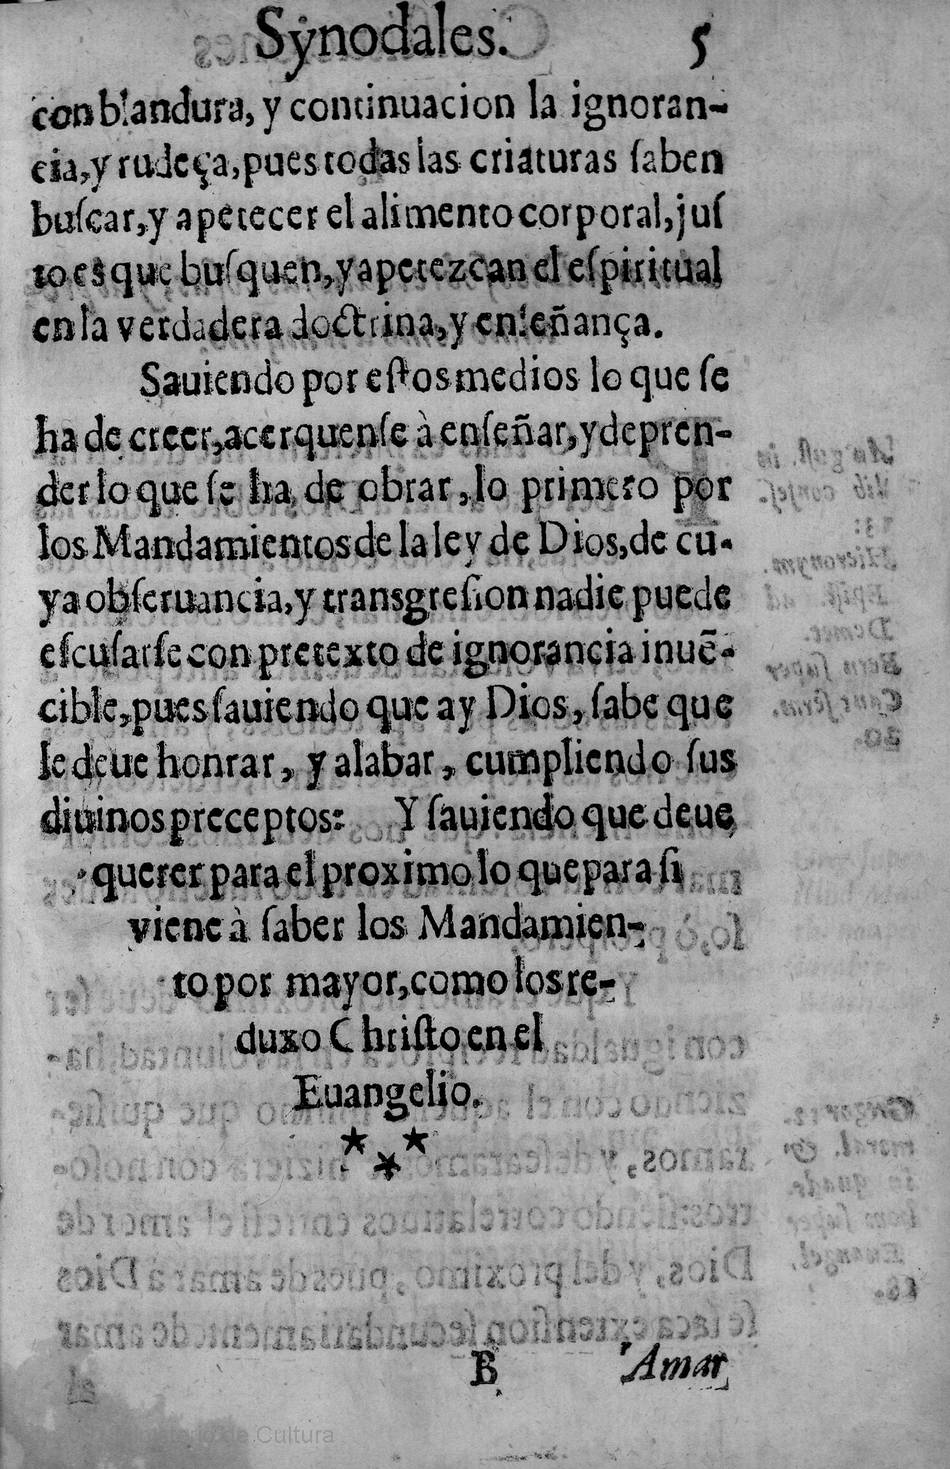 Synodales. 5
con blandura, y continuacion la ignoran-
cia, y rudeça, pues todas las criaturas ſaben
buſcar, y apetecer el alimento corporal, juſ
to es que buſquen, y apetezcan el eſpiritual
en la verdadera doctrina, y enſeñança.
Sauiendo por eſtos medios lo que ſe
ha de creer, acerquenſe à enſeñar, y depren-
der lo que ſe ha de obrar, lo primero por
los Mandamientos de la ley de Dios, de cu-
ya obſeruancia, y transgreſion nadie puede
eſcuſarſe con pretexto de ignorancia inuē-
cible, pues ſauiendo que ay Dios, ſabe que
le deue honrar, y alabar, cumpliendo ſus
diuinos preceptos: Y ſauiendo que deue
querer para el proximo lo que para ſi
viene à ſaber los Mandamien-
to por mayor, como los re-
duxo Chriſto en el
Euangelio.
B Amar
Ministerio de Cultura